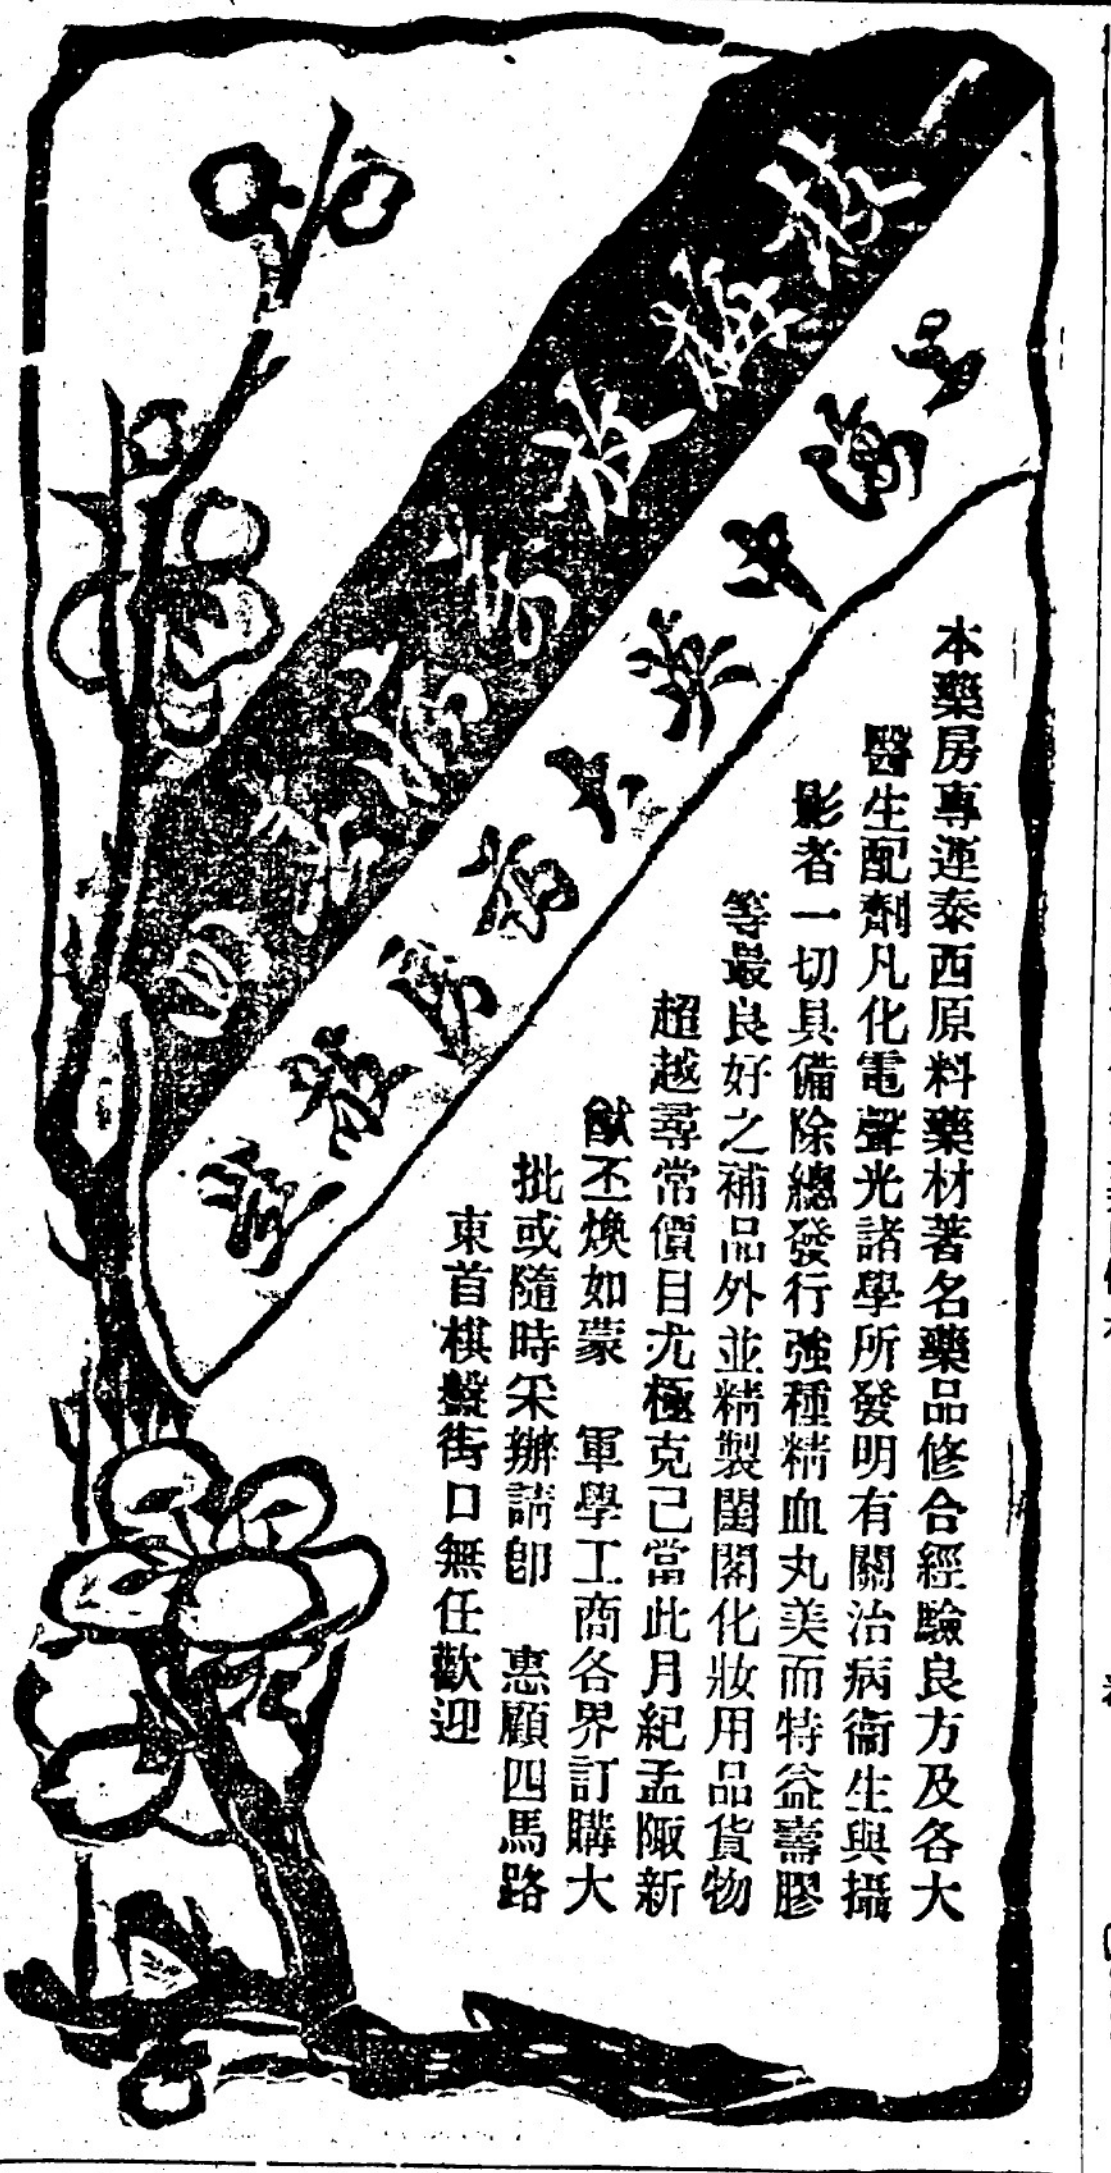 本藥房專運泰西原料藥材著名藥品修合經驗良方及各大
醫生配劑凡化電聲光諸學所發明有關治病衞生與攝
影者一切具備除總發行強種精血丸美而特益壽膠
等最良好之補品外並精製閨閣化妝用品貨物
超越尋常價目尤極克己當此月紀孟陬新
猷丕煥如蒙　軍學工商各界訂購大
批或隨時采辦請卽　惠顧四馬路
東首棋盤街口無任歡迎